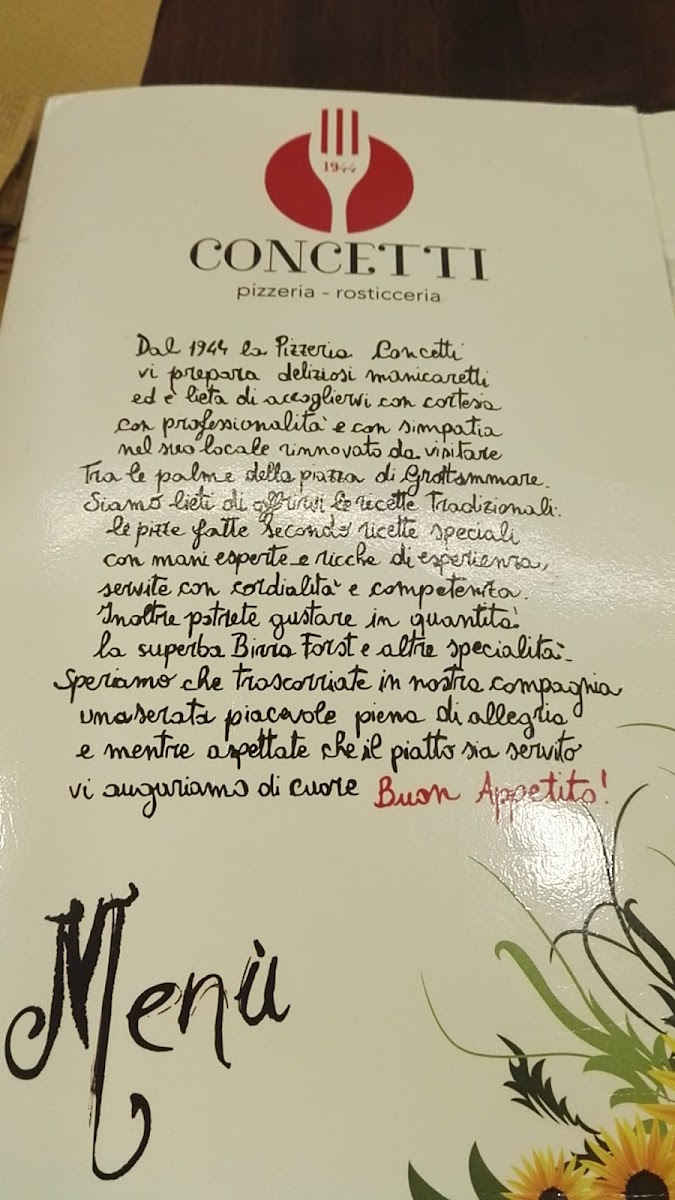 1944
CONCETTI
pizzeria - rosticceria
Dal 1944 la Pizzeria Concetti
vi prepara deliziosi manicaretti
ed è lieta di accogliervi con cortesia
con professionalità e con simpatia
nel suo locale rinnovato da visitare
Tra le palme della piazza di Grottammare.
Siamo lieti di offrirvi le ricette Tradizionali.
le pizze fatte secondo ricette speciali
con mani esperte e ricche di esperienza,
servite con cordialità e competenza.
Inoltre potrete gustare in quantità
la superba Birra Forst e altre specialità.
Speriamo che trascorriate in nostra compagnia
una serata piacevole piena di allegria
e mentre aspettate che il piatto sia servito
vi auguriamo di cuore Buon Appetito!
Menù